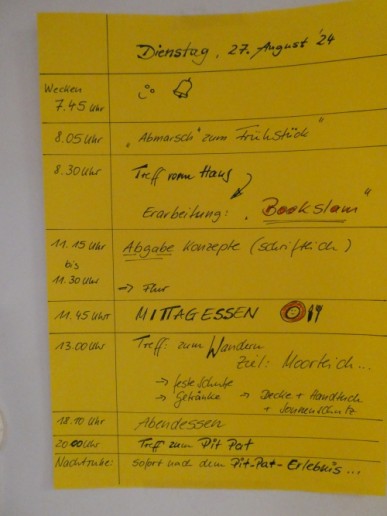 Dienstag, 27. August '24
Wecken
7.45 Uhr
8.05 Uhr „Abmarsch" zum Frühstück"
8.30 Uhr Treff vorm Haus
Erarbeitung: „Bookslam"
11.15 Uhr Abgabe Konzepte (schriftlich)
bis
11.30 Uhr → Flur
11.45 Uhr MITTAGESSEN
13.00 Uhr Treff: zum Wandern
Ziel: Moorteich...
→ feste Schuhe
→ Getränke → Decke + Handtuch
+ Sonnenschutz
18.10 Uhr Abendessen
20.00 Uhr Treff zum Pit Pat
Nachtruhe: sofort nach dem Pit-Pat-Erlebnis...